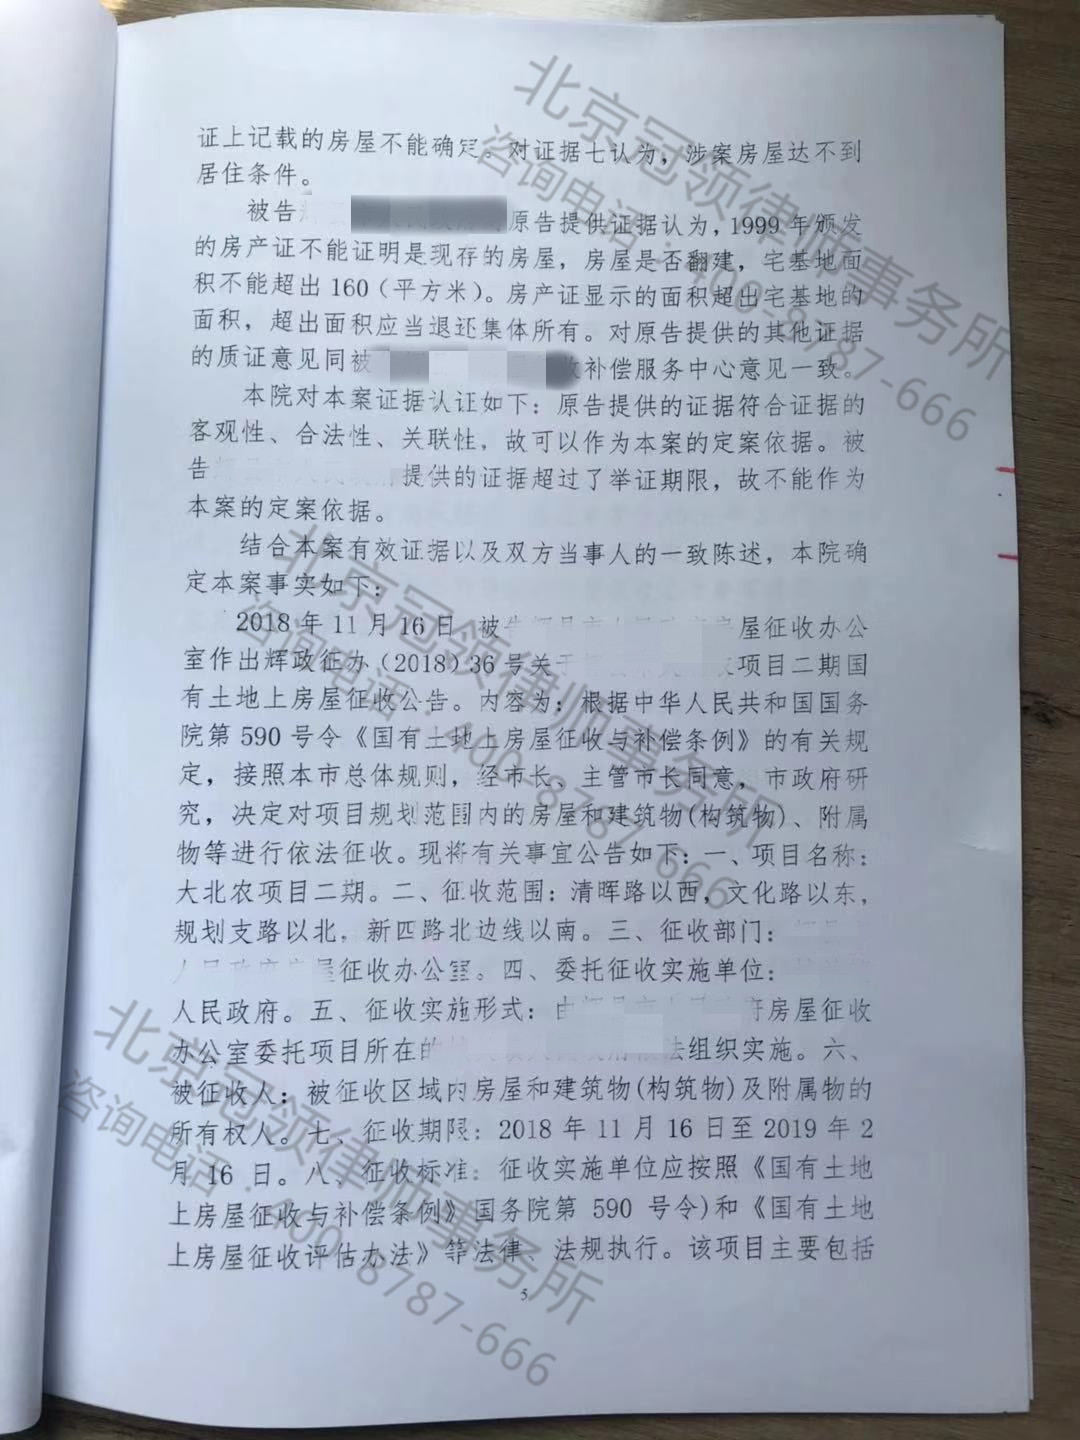 证上记载的房屋不能确定。对证据七认为，涉案房屋达不到
居住条件。
被告 原告提供证据认为，1999年颁发
的房产证不能证明是现存的房屋，房屋是否翻建，宅基地面
积不能超出160（平方米）。房产证显示的面积超出宅基地的
面积，超出面积应当退还集体所有。对原告提供的其他证据
的质证意见同被 补偿服务中心意见一致。
本院对本案证据认证如下：原告提供的证据符合证据的
客观性、合法性、关联性，故可以作为本案的定案依据。被
告 提供的证据超过了举证期限，故不能作为
本案的定案依据。
结合本案有效证据以及双方当事人的一致陈述，本院确
定本案事实如下：
2018年11月16日，被 房屋征收办公
室作出辉政征办（2018）36号关于 项目二期国
有土地上房屋征收公告。内容为：根据中华人民共和国国务
院第590号令《国有土地上房屋征收与补偿条例》的有关规
定，按照本市总体规则，经市长、主管市长同意，市政府研
究，决定对项目规划范围内的房屋和建筑物(构筑物)、附属
物等进行依法征收。现将有关事宜公告如下：一、项目名称：
大北农项目二期。二、征收范围：清晖路以西，文化路以东，
规划支路以北，新四路北边线以南。三、征收部门：
人民政府房屋征收办公室。四、委托征收实施单位：
人民政府。五、征收实施形式：由 府房屋征收
办公室委托项目所在的 法组织实施。六、
被征收人：被征收区域内房屋和建筑物(构筑物)及附属物的
所有权人。七、征收期限：2018年11月16日至2019年2
月16日。八、征收标准：征收实施单位应按照《国有土地
上房屋征收与补偿条例》国务院第590号令)和《国有土地
上房屋征收评估办法》等法律、法规执行。该项目主要包括
5
北京冠领律师事务所
咨询电话：400-8787-666
北京冠领律师事务所
咨询电话：400-8787-666
北京冠领律师事务所
咨询电话：400-8787-666